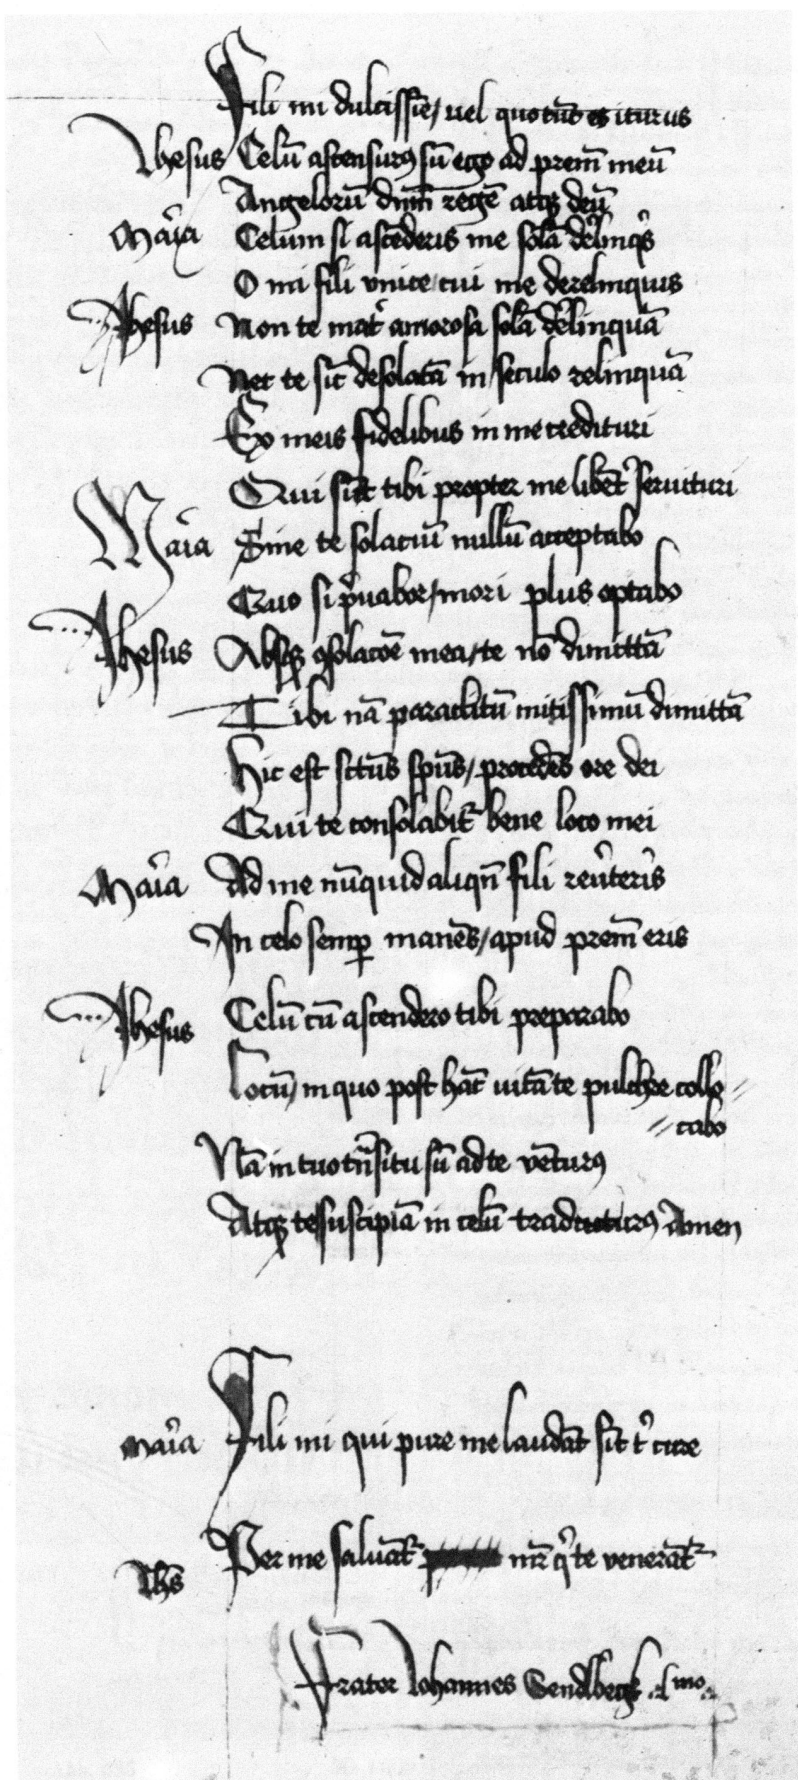 Fili mi dulcissīe / uel quo tūc es iturus
Ihesus Celū astensurꝰ sū ego ad prēm meū
Angelorū dn̄m regē atqꝫ deū
Maria Celum si ascēderis me solā delinqͥs
O mi fili vnice / cui me derelinquis
Ihesus Non te mat̉ amorosa solā delinquā
Nec te sic desolatā in seculo relinquā
Ex meis fidelibus in me credituri
Qui sūt tibi propter me libēt̉ seruituri
Maria Sine te solaciū nullū acceptabo
Quo si pͥuabor / mori plus optabo
Ihesus Absqꝫ ꝯsolacōe mea / te nō dimittā
Tibi nā paraclitū mitissimū dimittā
Hic est sctūs spūs / procedēs ore dei
Qui te consolabit̉ bene loco mei
Maria Ad me nūquid aliqn̄ fili reủteris
In celo semꝑ manēs / apud prēm eris
Ihesus Celū cū ascendero tibi preparabo
Locū / in quo post hāc uitā te pulchre collo //
// cabo
Nā in tuo trāsitu sū ad te vēturꝰ
Atqꝫ te suscipiā in celū traducturꝰ Amen
Maria Fili mi qui pure me laudāt sīt t̉ cure
Ihs̄ Per me saluāt̉ mr̄ qͥ te venerāt̉
Frater Iohannes Gendlbegk .lmo.